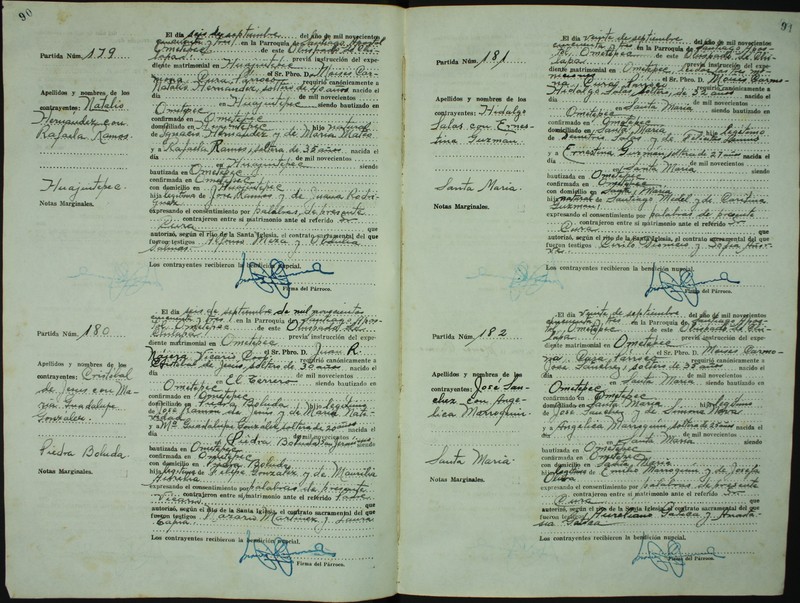 90
Partida Núm. 179
Apellidos y nombres de los
contrayentes: Natalio
Hernandez con
Rafaela Ramos.
Huajintepec.
Notas Marginales.
El día seis de septiembre del año de mil novecientos
cincuenta y tres en la Parroquia de Santiago Apostol
Ometepec de este Obispado de Chi-
lapa previa instrucción del expe-
diente matrimonial en Huajintepec
el Sr. Pbro. D. Moises Car-
mona Cura Parroco requirió canónicamente a
Natalio Hernandez, soltero de 40 años nacido el
día de mil novecientos
en Huajintepec siendo bautizado en
Ometepec
confirmado en Ometepec
domiciliado en Huajintepec hijo natural
de Ignacio Hernandez y de Maria Mateo
y a Rafaela Ramos, soltera de 35 años nacida el
día de mil novecientos
en Huajintepec siendo
bautizada en Ometepec
confirmada en Ometepec
con domicilio en Huajintepec
hija legitima de Jose Ramos y de Juana Rodri-
guez
expresando el consentimiento por palabras de presente
contrajeron entre sí matrimonio ante el referido Sr.
Cura que
autorizó, según el rito de la Santa Iglesia, el contrato sacramental del que
fueron testigos Alfonso Meza y
Salinas
Los contrayentes recibieron la bendición nupcial.
Firma del Párroco.
Partida Núm. 180
Apellidos y nombres de los
contrayentes: Cristobal
de Jesus con Ma-
ria Guadalupe
Gonzalez.
Piedra Boluda
Notas Marginales.
El día seis de septiembre de mil novecientos
cincuenta y tres en la Parroquia de Santiago Apos-
tol Ometepec de este Obispado de
Chilapa previa instrucción del expe-
diente matrimonial en Ometepec
el Sr. Pbro. D. Juan R.
Vicario Coop. requirió canónicamente a
Cristobal de Jesus, soltero de 30 años nacido el
día de mil novecientos
en El Terrero siendo bautizado en
Ometepec
confirmado en Ometepec
domiciliado en Piedra Boluda hijo legitimo
de Jose Ramon de Jesus y de Maria Nati-
vidad
y a Mª Guadalupe Gonzalez, soltera de 20 años nacida el
día de mil novecientos
en Piedra Boluda siendo
bautizada en Ometepec
confirmada en Ometepec
con domicilio en Piedra Boluda
hija legitima de Felipe Gonzalez y de Maurilia
expresando el consentimiento por palabras de presente
contrajeron entre sí matrimonio ante el referido Sr.
Vicario que
autorizó, según el rito de la Santa Iglesia, el contrato sacramental del que
fueron testigos Nazario Martinez y Laura
Tapia
Los contrayentes recibieron la bendición nupcial.
Firma del Párroco.
91
Partida Núm. 181
Apellidos y nombres de los
contrayentes: Hidalgo
Salas con Ernes-
tina Guzman.
Santa Maria.
Notas Marginales.
El día veinte de septiembre del año de mil novecientos
cincuenta y tres en la Parroquia de Santiago Apos-
tol Ometepec de este Obispado de Chi-
lapa previa instrucción del expe-
diente matrimonial en Ometepec
el Sr. Pbro. D. Moises Carmo-
na Cura Parroco requirió canónicamente a
Hidalgo Salas soltero de 32 años nacido el
día de mil novecientos
en Santa Maria siendo bautizado en
Ometepec
confirmado en Ometepec
domiciliado en Santa Maria hijo legitimo
de Salas y de
y a Ernestina Guzman, soltera de 27 años nacida el
día de mil novecientos
en Santa Maria siendo
bautizada en Ometepec
confirmada en Ometepec
con domicilio en Santa Maria
hija natural de Santiago Medel y de Carolina
Guzman
expresando el consentimiento por palabras de presente
contrajeron entre sí matrimonio ante el referido Sr.
Cura que
autorizó, según el rito de la Santa Iglesia, el contrato sacramental del que
fueron testigos Cirilo y Sofia
Los contrayentes recibieron la bendición nupcial.
Firma del Párroco.
Partida Núm. 182
Apellidos y nombres de los
contrayentes: Jose San-
chez con Ange-
lica Marroquin.
Santa Maria.
Notas Marginales.
El día veinte de septiembre del año de mil novecientos
cincuenta y tres en la Parroquia de Santiago Apos-
tol Ometepec de este Obispado de Chi-
lapa previa instrucción del expe-
diente matrimonial en Ometepec
el Sr. Pbro. D. Moises Carmo-
na Cura Parroco requirió canónicamente a
Jose Sanchez, soltero de 35 años nacido el
día de mil novecientos
en Santa Maria siendo bautizado en
Ometepec
confirmado en Ometepec
domiciliado en Santa Maria hijo legitimo
de Jose Sanchez y de Simona
y a Angelica Marroquin, soltera de años nacida el
día de mil novecientos
en Santa Maria siendo
bautizada en Ometepec
confirmada en Ometepec
con domicilio en Santa Maria
hija legitima de Marroquin y de Josefa
expresando el consentimiento por palabras de presente
contrajeron entre sí matrimonio ante el referido Sr.
Cura que
autorizó, según el rito de la Santa Iglesia, el contrato sacramental del que
fueron testigos Aureliano y
Los contrayentes recibieron la bendición nupcial.
Firma del Párroco.